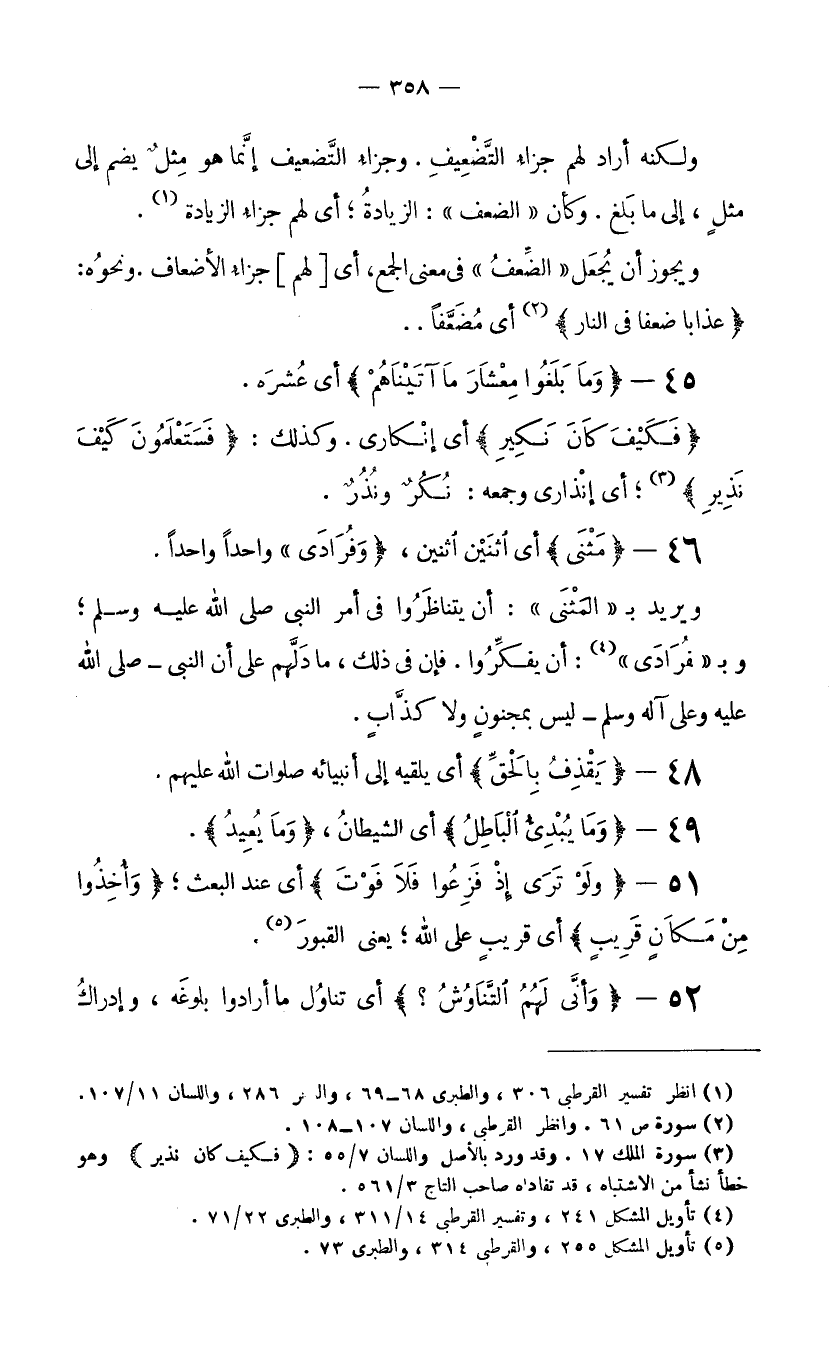 — ٣٥٨ —
ولكنه أراد لهم جزاء التَّضْعِيفِ . وجزاء التَّضعيف إنَّما هو مِثلٌ يضم إلى
مثلٍ ، إلى ما بَلغ . وكأن « الضعف » : الزيادةُ ؛ أى لهم جزاء الزيادة (١) .
ويجوز أن يُجعَل « الضِّعفُ » فى معنى الجمع، أى [ لهم ] جزاء الأضعاف .ونحوُه:
﴿ عذابا ضعفا فى النار ﴾ (٢) أى مُضَعَّفاً . .
٤٥ — ﴿ وَمَا بَلَغُوا مِعْشَارَ مَا آتَيْنَاهُمْ ﴾ أى عُشرَه .
﴿ فَكَيْفَ كَانَ نَكِيرِ ﴾ أى إنْكارى . وكذلك : ﴿ فَسَتَعْلَمُونَ كَيْفَ
نَذِيرِ ﴾ (٣) ؛ أى إنْذارى وجمعه : نُكُرٌ ونُذُرٌ .
٤٦ — ﴿ مَثْنَى ﴾ أى ٱثنَيْن ٱثنين ، ﴿ وَفُرَادَى » واحداً واحداً .
ويريد بـ « المَثْنَى » : أن يتناظَرُوا فى أمر النبى صلى الله عليه وسلم ؛
و بـ « فُرَادَى »(٤) : أن يفكِّرُوا . فإن فى ذلك ، ما دَلَّهم على أن النبى ـ صلى الله
عليه وعلى آله وسلم ـ ليس بمجنونٍ ولا كذَّابٍ .
٤٨ — ﴿ يَقْذِفُ بِالْحَقِّ ﴾ أى يلقيه إلى أنبيائه صلوات الله عليهم .
٤٩ — ﴿ وَمَا يُبْدِئُ ٱلْبَاطِلُ ﴾ أى الشيطانُ ، ﴿ وَمَا يُعِيدُ ﴾ .
٥١ — ﴿ ولَوْ تَرَى إِذْ فَزِعُوا فَلَا فَوْتَ ﴾ أى عند البعث ؛ ﴿ وَأُخِذُوا
مِنْ مَكَانٍ قَرِيبٍ ﴾ أى قريبٍ على الله ؛ يعنى القبورَ (٥) .
٥٢ — ﴿ وَأَنَّى لَهُمُ ٱلتَّنَاوُشُ ؟ ﴾ أى تناوُل ما أرادوا بلوغَه ، وإدراكُ
(١) انظر تفسير القرطبى ٣٠٦ ، والطبرى ٦٨ـ٦٩ ، ٢٨٦ ، واللسان ١٠٧/١١ .
(٢) سورة ص ٦١ . وانظر القرطبى ، واللسان ١٠٧ـ١٠٨ .
(٣) سورة الملك ١٧ . وقد ورد بالأصل واللسان ٥٥/٧ : ( فكيف كان نذير ) وهو
خطأ نشأ من الاشتباه ، قد تفاداه صاحب التاج ٥٦١/٣ .
(٤) تأويل المشكل ٢٤١ ، وتفسير القرطبى ٣١١/١٤ ، والطبرى ٧١/٢٢ .
(٥) تأويل المشكل ٢٥٥ ، والقرطبى ٣١٤ ، والطبرى ٧٣ .